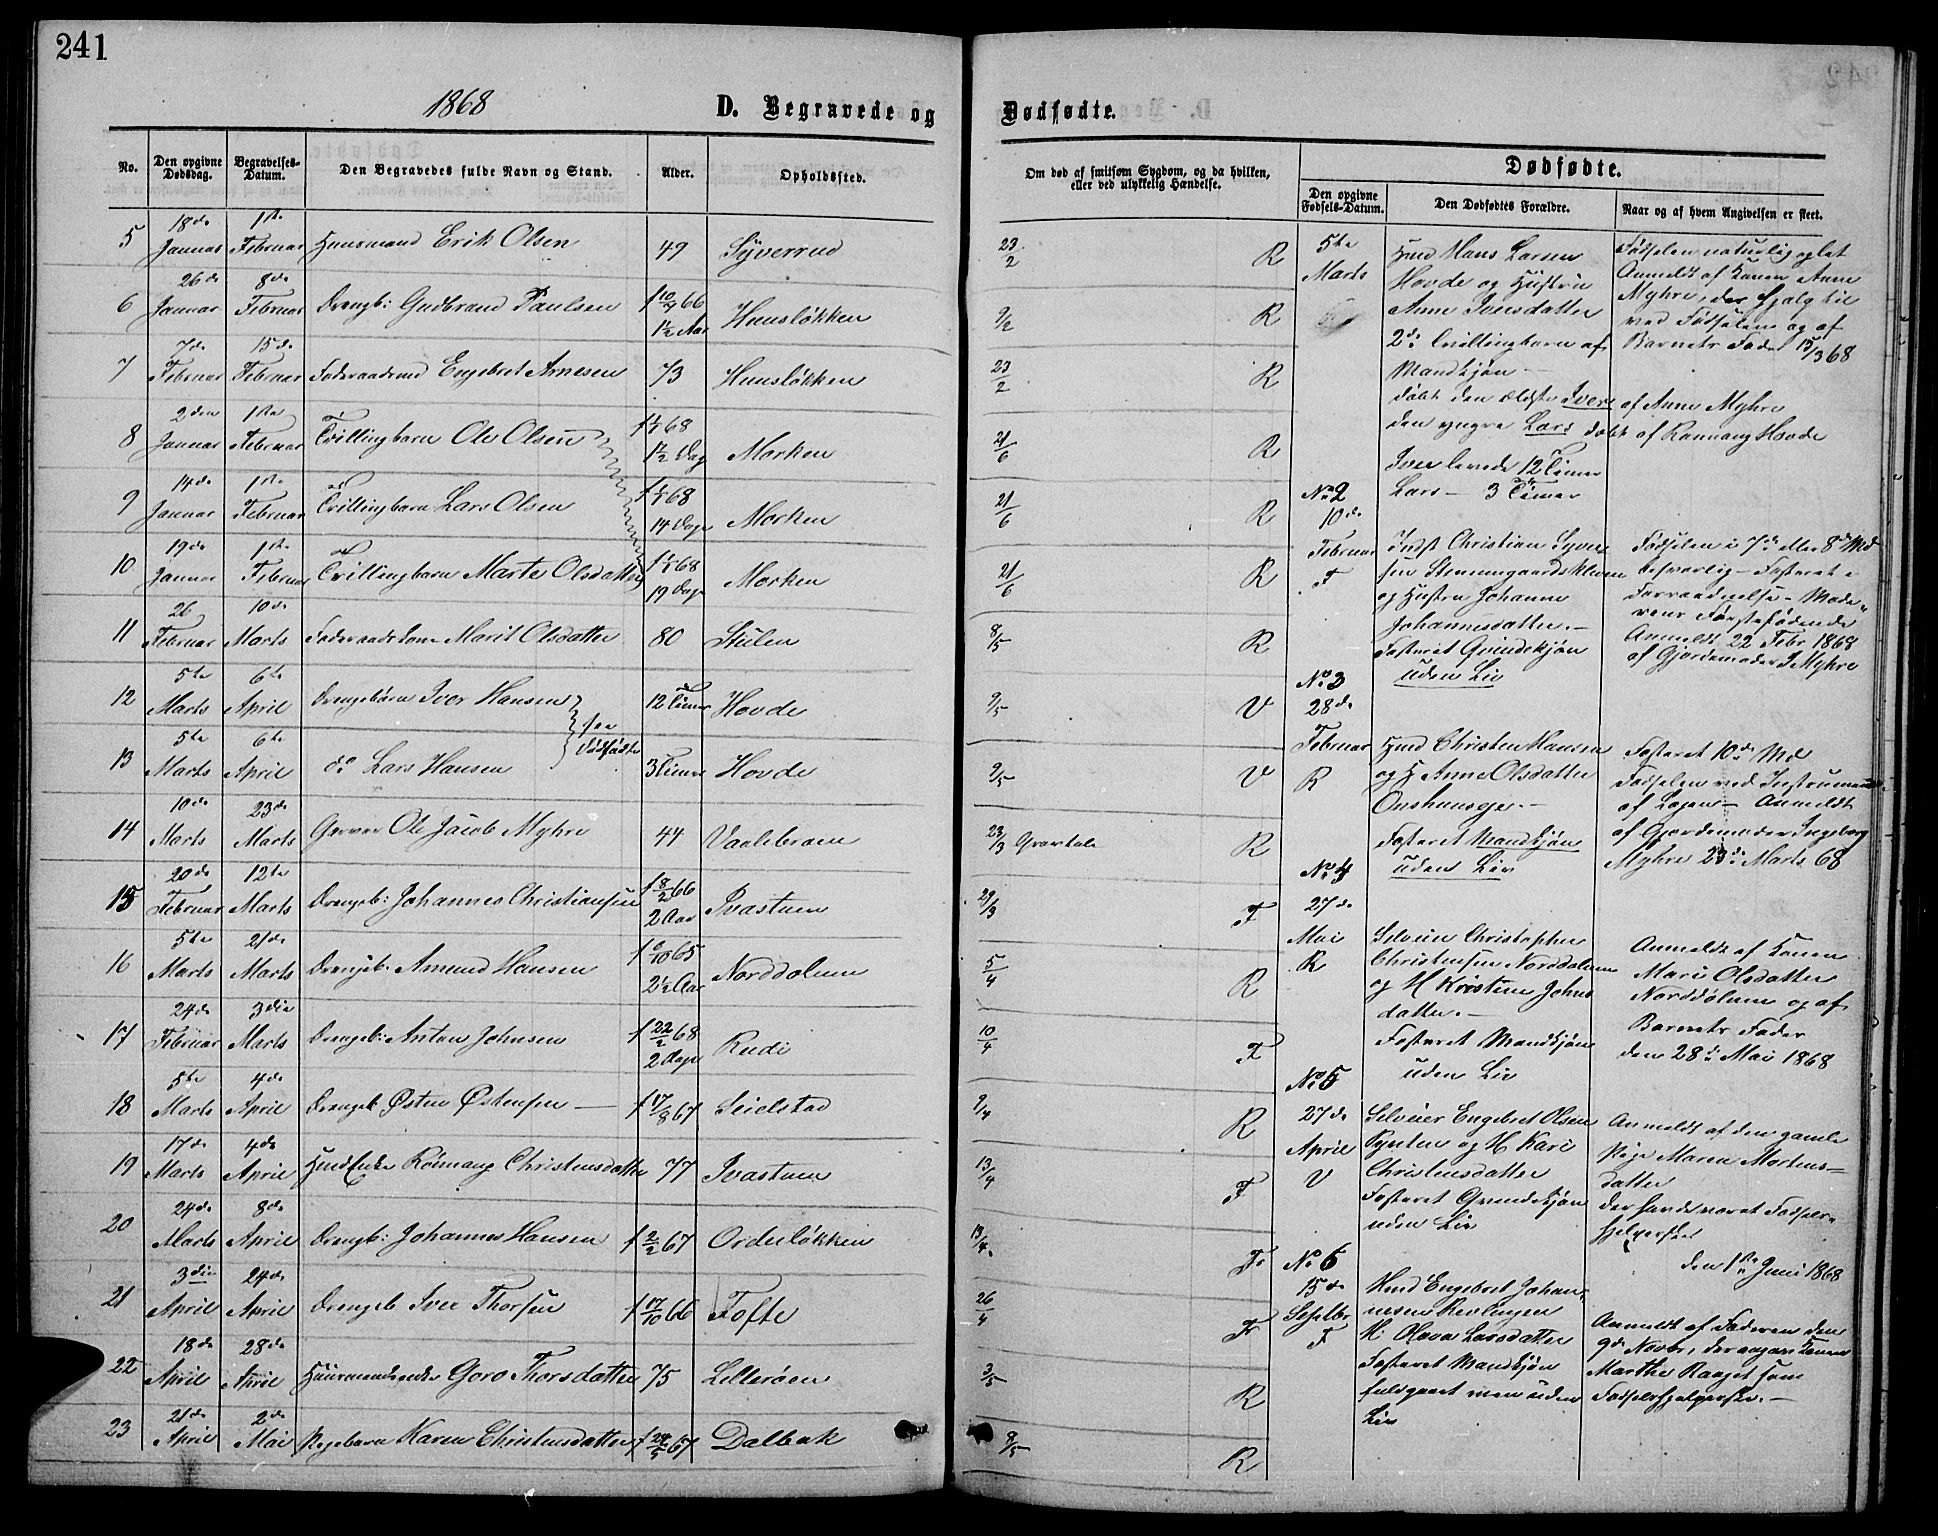 241
1868
D. Begravede og
No.
Den opgivne Dødsdag.
Begravelses-Datum.
Den Begravedes fulde Navn og Stand.
Alder.
Opholdssted.
5 18de Januar 1ste Februar Huusmand Erik Olsen 49 Syverrud
6 26de Januar 8de Februar Drengb: Gudbrand Paulsen 1½ Aar Huusløkken
7 7de Februar 15de Februar Engebret Arnesen 73 Huusløkken
8 2den Januar 1ste Februar Tvillingbarn Ole Olsen f 1/1 68 1½ Dag Morken
9 14de Januar 1ste Februar Tvillingbarn Lars Olsen f 1/1 68 14 Dage Morken
10 19de Januar 1ste Februar Tvillingbarn Marte Olsdatter f 1/1 68 19 Dage Morken
11 26 Februar 10de Marts Marit Olsdatter 80 Stulen
12 5te Marts 6te April Drengebørn Iver Hansen 12 Timer Hovde
see Dødfødte
13 5te Marts 6te April do Lars Hansen 3 Timer Hovde
14 10de Marts 23de Marts Garver Ole Jacob Myhre 44 Vaalebroen
15 20de Februar 12te Marts Drengeb: Johannes Christiansen f 8/2 66 2 Aar Ivastuen
16 5te Marts 21de Marts Drengeb. Amund Hansen 2½ Aar Norddølum
17 24de Februar 3die Marts Drengeb: Anton Johnsen f 22/2 68 2 Dage Rudi
18 5te Marts 4de April Drengeb Østen Østensen f 17/8 67 Seielstad
19 17de Marts 4de April Christensdatter 77 Ivastuen
20 24de Marts 8de April Drengb: Johannes Hansen f 2/2 67 Orderløkken
21 3die April 24de April Drengeb Iver Thorsen f 17/10 66 Tofte
22 18de April 28de April Huusmandsenke Goro Thorsdatter 75 Lillerøen
23 21de April 2de Mai Pigebarn Karen Christensdatter 67 Dalbak
Dødfødte.
Om død af smitsom Sygdom, og da hvilken, eller ved ulykkelig Hændelse.
Dødfødte.
Den opgivne Fødsels-Datum.
Den Dødfødtes Forældre.
Naar og af hvem Angivelsen er skeet.
23/2 R
9/2 R
23/2 R
21/6 R
21/6 R
21/6 R
8/5 R
9/5 V
9/5 V
23/3 R
29/3 F
5/4 R
10/4 F
9/4 R
13/4 F
13/4 Fr
26/4 Fr
3/5 R
8/5 R
5te Marts
Hmd Hans Larsen
Hovde og Hustru
Anne Iversdatter
2de Tvillingbørn af
Mandkjøn
døbt den ældste Iver af Anne Myhre
den yngre Lars døbt af Rønnaug Hovde
Iver levede 12 Timer
Lars — 3 Timer
Fødselen naturlig og let
Anmeldt af Konen Anne
Myhre, der hjalp til
ved Fødselen og af
Barnets Fader 15/3 68
No 2
10de Februar
F
Inst Christian Syver
sen Stenumgaardskleven
og Hustru Johanne
Johannesdatter. —
Fosteret Qvindekjøn
uden Liv
Fødselen i 7de eller 8de Md
besværlig — Fosteret i
Forraadnelse — Mode„
rens Førstefødende
Anmeldt 22 Febr 1868
af Gjordemoder I Myhre
No 3
28de Februar
R
Hmd Christen Hansen
og H Anne Olsdatter
Onshuuseje. —
Fosteret Mandkjøn
uden Liv
Fosteret 10de Md
Fødselen ved Instrument
af Lægen — Anmeldt
af Gjordemoder Ingeborg
Myhre 23de Marts 68
No 4
27de Mai
R
Selveier Christopher
Christensen Norddølum
og H Kristine Johns
datter. —
Fosteret Mandkjøn
uden Liv
Anmeldt af Konen
Mari Olsdatter
Norddølum og af
Barnets Fader
den 28de Mai 1868
No 5
27de April
V
Selveier Engebret Olsen
og H Kari
Christensdatter
Fosteret Qvindekjøn
uden Liv
Anmeldt af den gamle
Pige Maren Mortens—
datter
der havde været Fødsels„
hjelperske
den 1ste Juni 1868
No 6
15de Septbr
F
Hmd Engebret Johan„
nesen Revlingen
H: Olava Larsdatter
Fosteret Mandkjøn
fuldgaaet men uden
Liv
Anmeldt af Faderen den
9de Novbr, der angav Konen
Marthe Haaget som
Fødselshjelperske. —